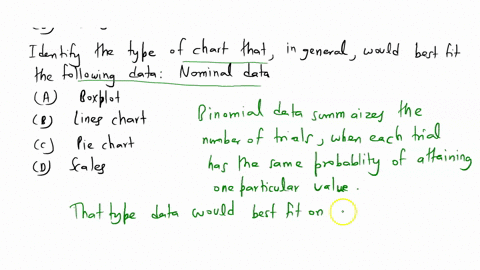 Identify the type of chart that, in general, would best fit
the following data: Nominal data
(A) Boxplot
(B) Lines chart
(C) Pie chart
(D) Scales
Binomial data summaizes the
number of trials, when each trial
has the same probablity of attaining
one particular value.
That type data would best fit on